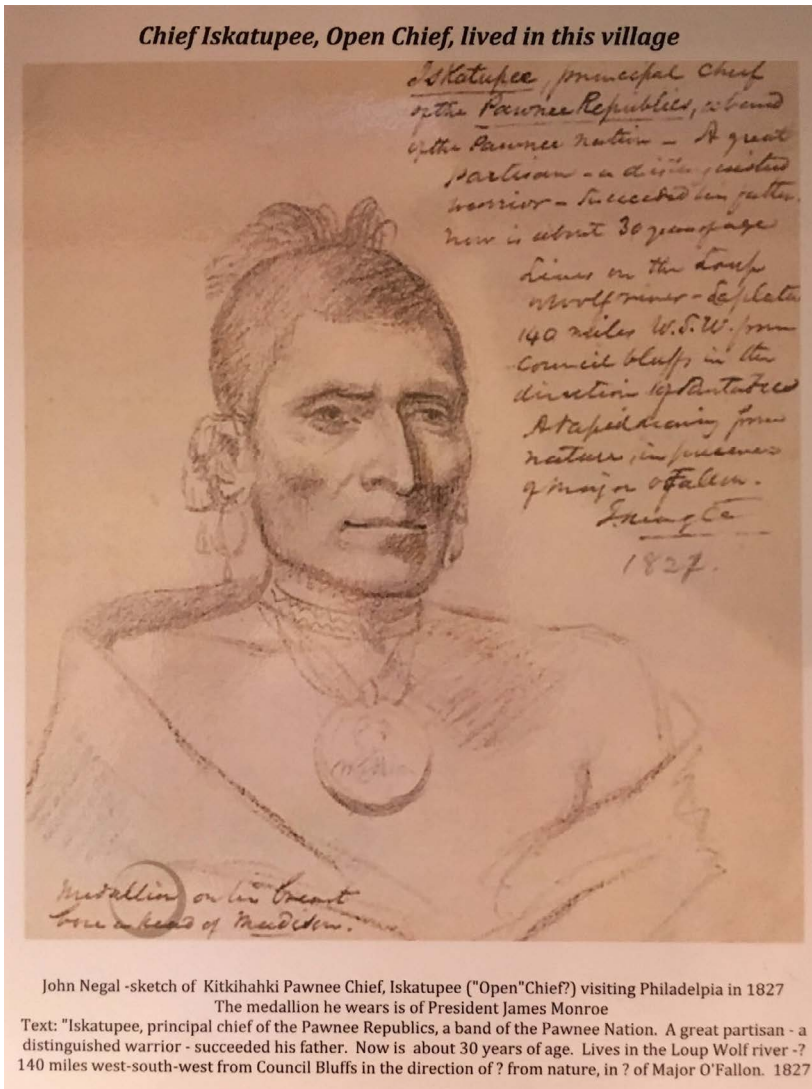 Chief Iskatupee, Open Chief, lived in this village
Iskatupee, principal chief
of the Pawnee Republics, a band
of the Pawnee nation - A great
partisan - a distinguished
warrior - succeeded his father.
now is about 30 years of age
Lives on the Loup
river -
140 miles W.S.W. from
Council bluffs in the
direction of
A rapid drawing from
nature, in presence
of Major O'Fallon.
1827.
Medallion on his breast
bore a head of Madison.
John Negal -sketch of Kitkihahki Pawnee Chief, Iskatupee ("Open"Chief?) visiting Philadelpia in 1827
The medallion he wears is of President James Monroe
Text: "Iskatupee, principal chief of the Pawnee Republics, a band of the Pawnee Nation. A great partisan - a
distinguished warrior - succeeded his father. Now is about 30 years of age. Lives in the Loup Wolf river -?
140 miles west-south-west from Council Bluffs in the direction of ? from nature, in ? of Major O'Fallon. 1827